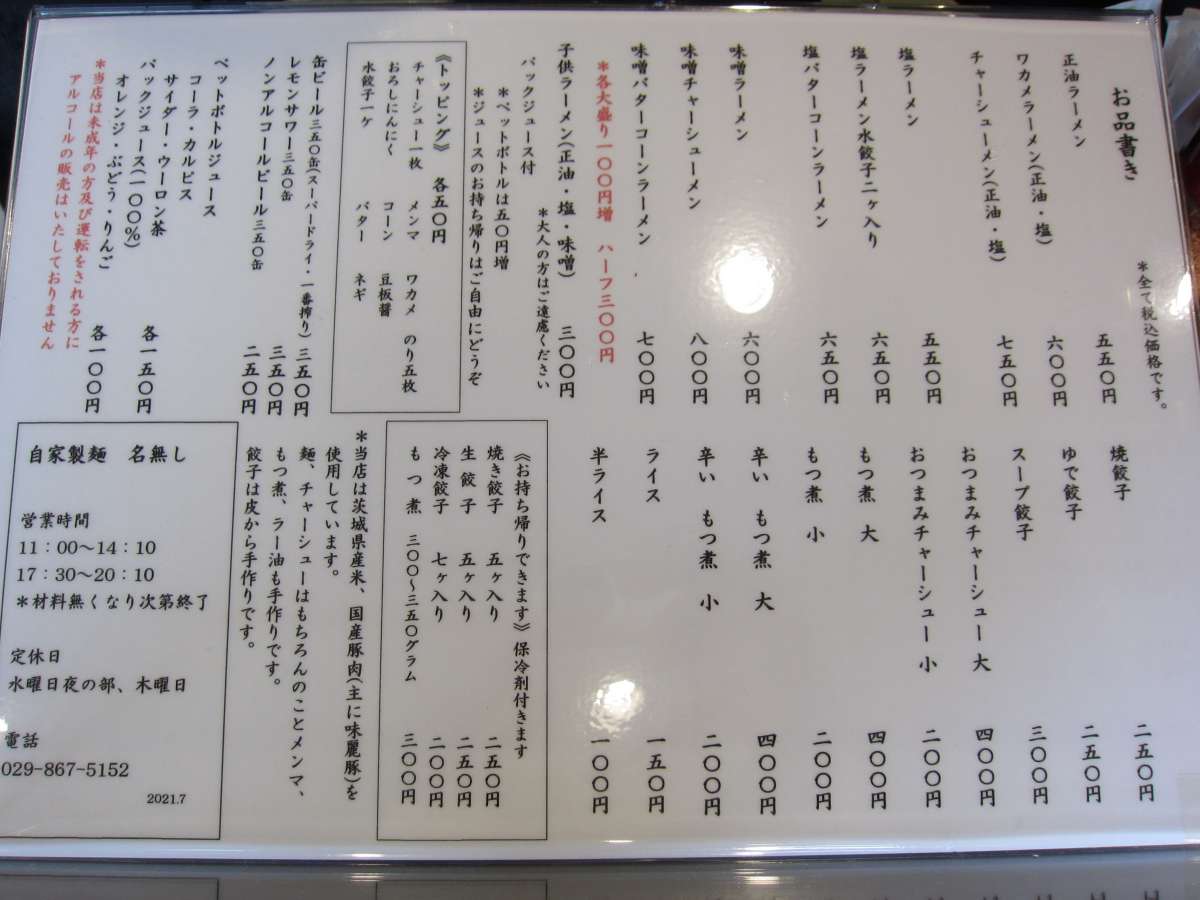 お品書き
*全て税込価格です。
正油ラーメン 五五〇円
ワカメラーメン(正油・塩) 六〇〇円
チャーシューメン(正油・塩) 七五〇円
塩ラーメン 五五〇円
塩ラーメン水餃子二ヶ入り 六五〇円
塩バターコーンラーメン 六五〇円
味噌ラーメン 六〇〇円
味噌チャーシューメン 八〇〇円
味噌バターコーンラーメン 七〇〇円
*各大盛り一〇〇円増 ハーフ三〇〇円
子供ラーメン(正油・塩・味噌) 三〇〇円
*大人の方はご遠慮ください
パックジュース付
*ペットボトルは五〇円増
*ジュースのお持ち帰りはご自由にどうぞ
《トッピング》 各五〇円
チャーシュー一枚 メンマ ワカメ のり五枚
おろしにんにく コーン 豆板醤
水餃子一ヶ バター ネギ
缶ビール三五〇缶(スーパードライ・一番搾り) 三五〇円
レモンサワー三五〇缶 三五〇円
ノンアルコールビール三五〇缶 二五〇円
ペットボトルジュース
コーラ・カルピス
サイダー・ウーロン茶 各一五〇円
パックジュース(一〇〇%)
オレンジ・ぶどう・りんご 各一〇〇円
*当店は未成年の方及び運転をされる方に
アルコールの販売はいたしておりません
焼餃子 二五〇円
ゆで餃子 二五〇円
スープ餃子 三〇〇円
おつまみチャーシュー 大 四〇〇円
おつまみチャーシュー 小 二〇〇円
もつ煮 大 四〇〇円
もつ煮 小 二〇〇円
辛い もつ煮 大 四〇〇円
辛い もつ煮 小 二〇〇円
ライス 一五〇円
半ライス 一〇〇円
《お持ち帰りできます》保冷剤付きます
焼き餃子 五ヶ入り 二五〇円
生餃子 五ヶ入り 二五〇円
冷凍餃子 七ヶ入り 二〇〇円
もつ煮 三〇〇〜三五〇グラム 三〇〇円
*当店は茨城県産米、国産豚肉(主に味麗豚)を
使用しています。
麺、チャーシューはもちろんのことメンマ、
もつ煮、ラー油も手作りです。
餃子は皮から手作りです。
自家製麺 名無し
営業時間
11:00〜14:10
17:30〜20:10
*材料無くなり次第終了
定休日
水曜日夜の部、木曜日
電話
029-867-5152
2021.7